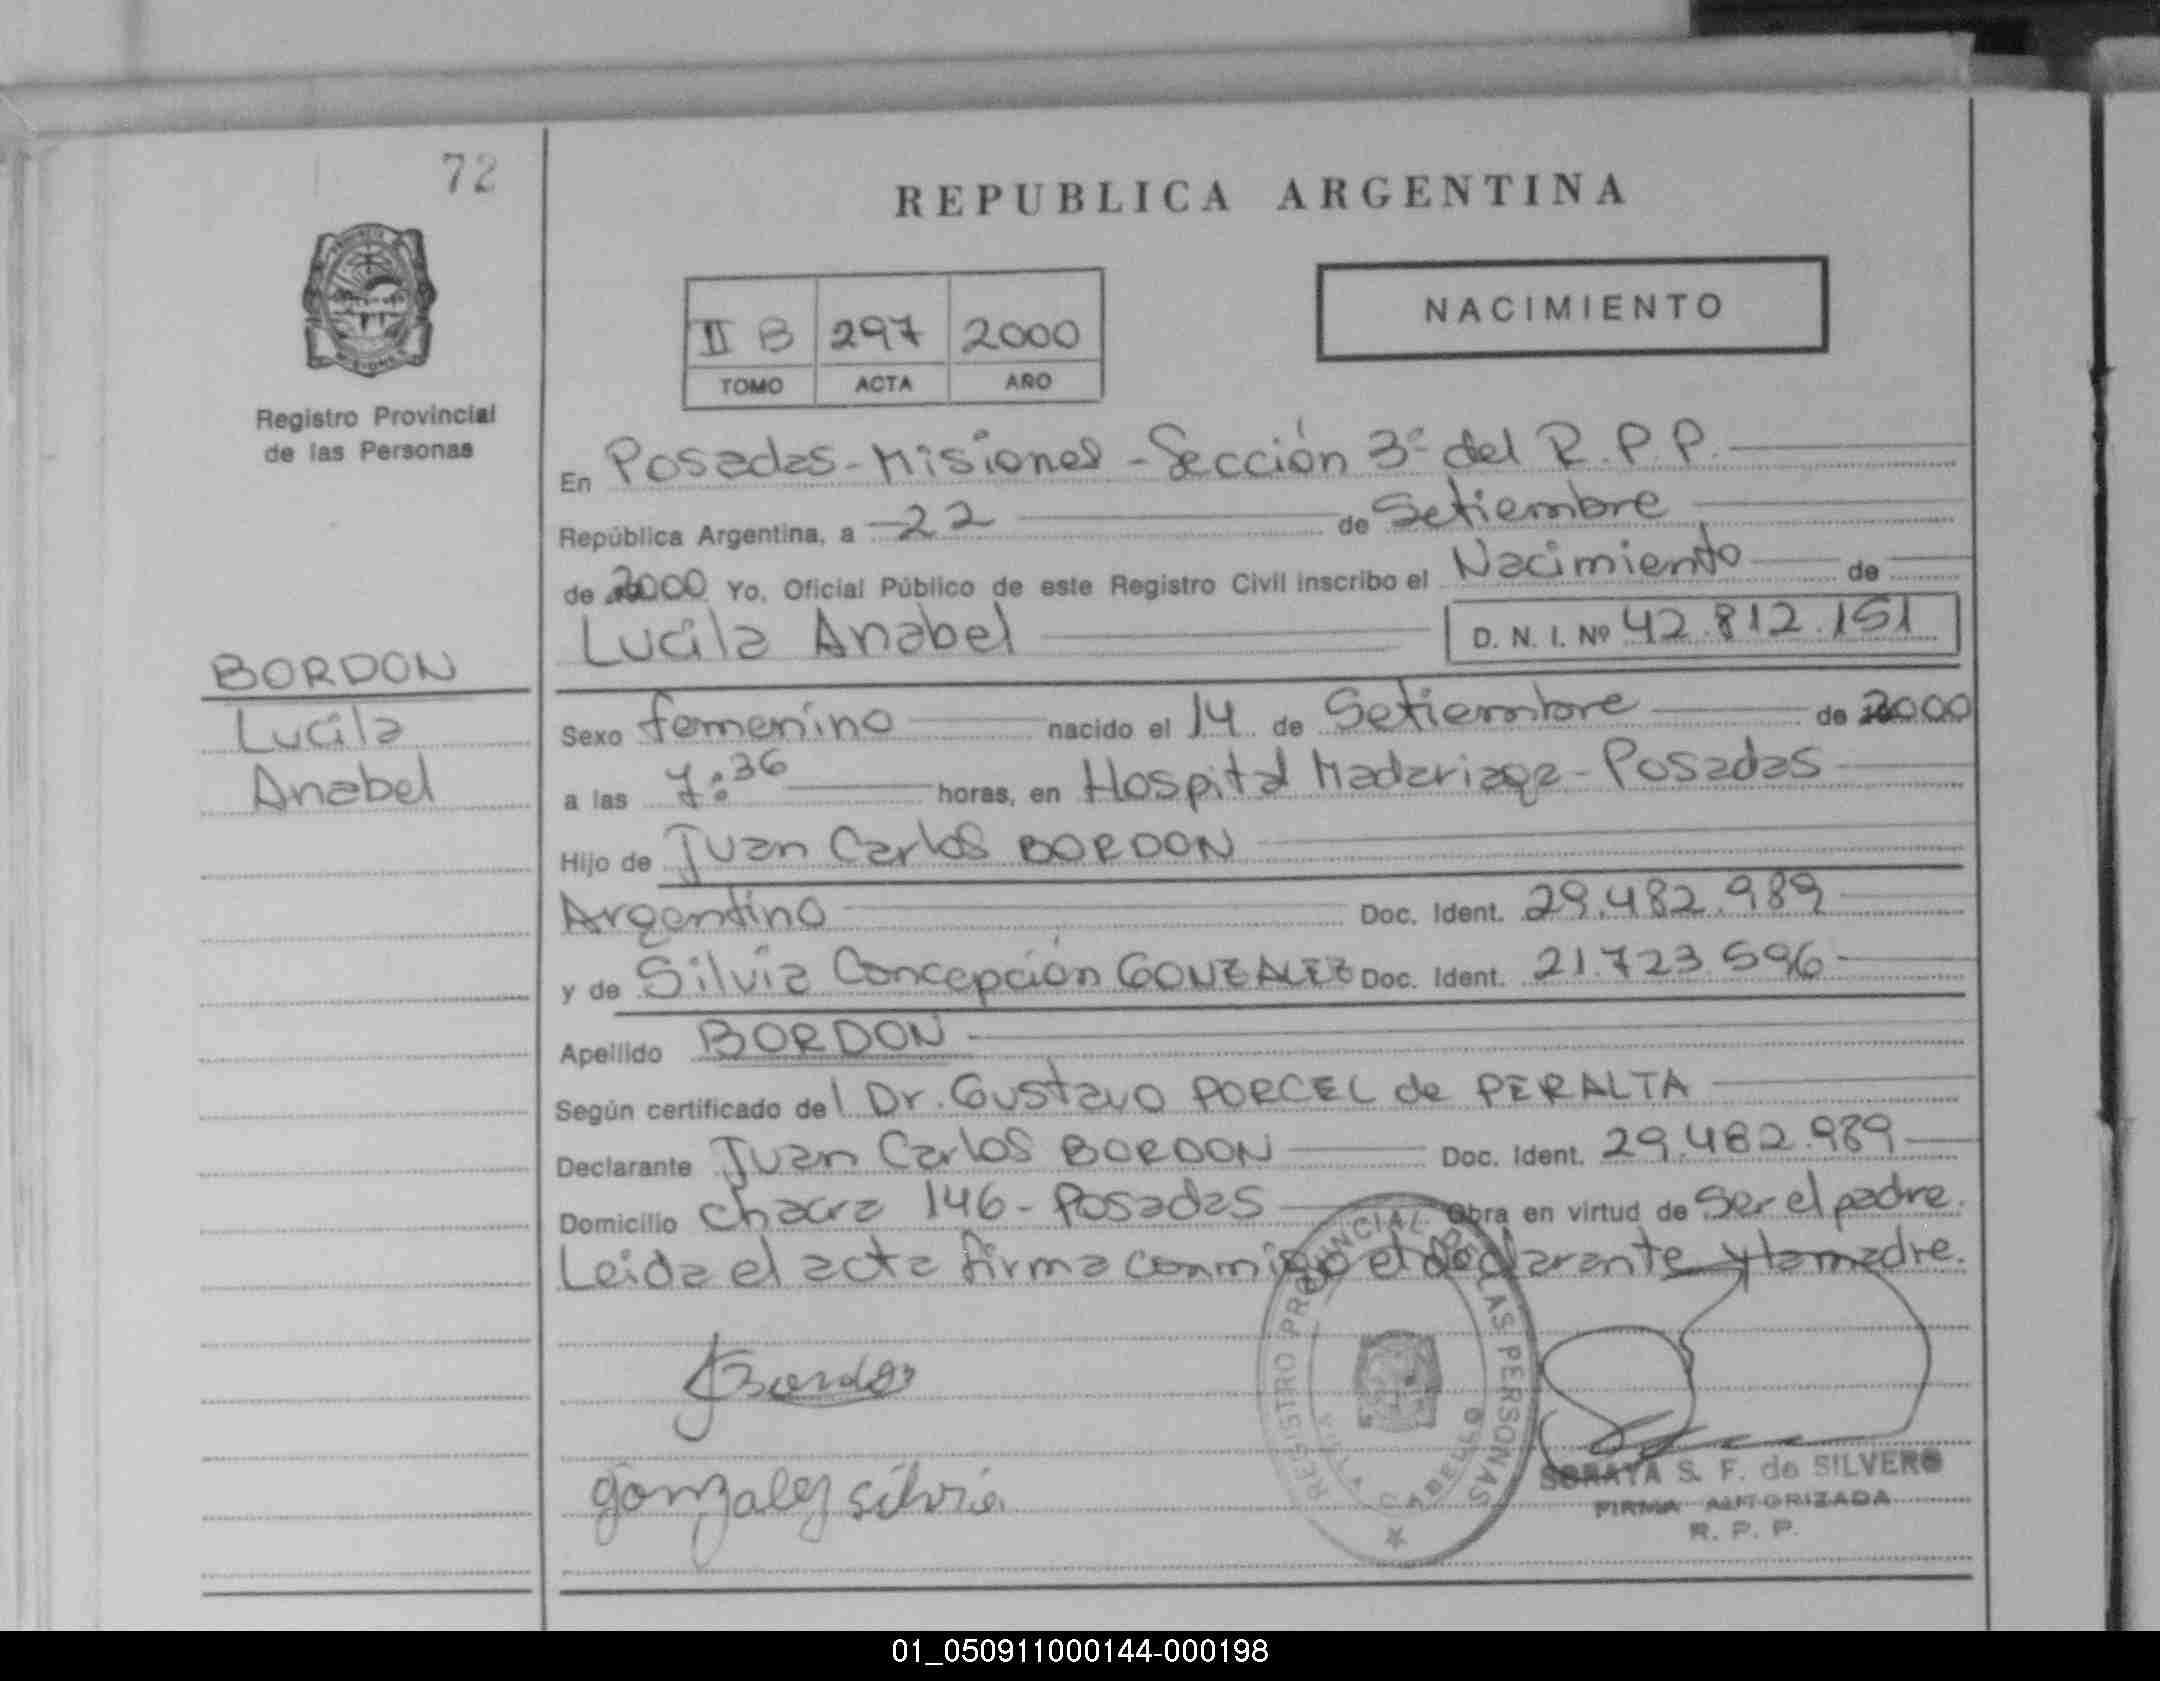 72
REPUBLICA ARGENTINA
NACIMIENTO
II B 297 2000
TOMO ACTA AÑO
Registro Provincial
de las Personas
En Posadas - Misiones - Sección 3ª del R.P.P.
República Argentina, a 22 de Setiembre
de 2000 Yo, Oficial Público de este Registro Civil inscribo el Nacimiento de
Lucila Anabel D. N. I. Nº 42.812.151
BORDON
Lucila
Anabel
Sexo femenino nacido el 14 de Setiembre de 2000
a las 7:36 horas, en Hospital Madariaga - Posadas
Hijo de Juan Carlos BORDON
Argentino Doc. Ident. 29.482.989
y de Silvia Concepción GONZALEZ Doc. Ident. 21.723.596
Apellido BORDON
Según certificado del Dr. Gustavo PORCEL de PERALTA
Declarante Juan Carlos BORDON Doc. Ident. 29.482.989
Domicilio chacra 146 - Posadas Obra en virtud de ser el padre.
Leida el acta firma conmigo el declarante y la madre.
REGISTRO PROVINCIAL DE LAS PERSONAS
VILLA CABELLO
Bordon
gonzalez silvia
SORAYA S. F. de SILVERO
FIRMA AUTORIZADA
R. P. P.
01_050911000144-000198